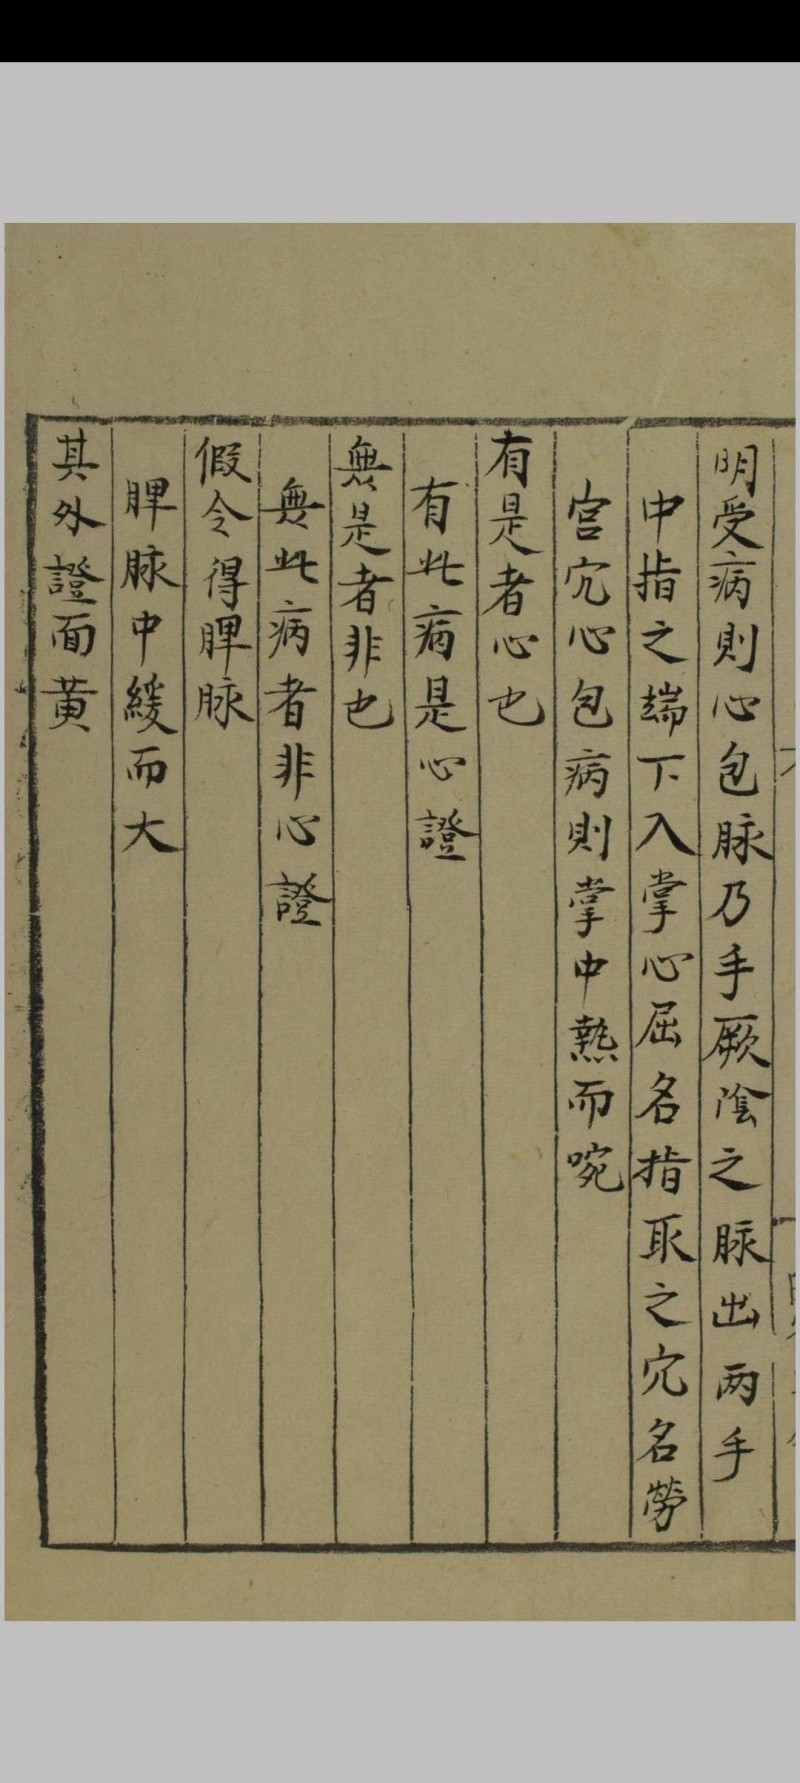 明受病則心包脉乃手厥陰之脉出两手
中指之端下入掌心屈名指取之穴名勞
宫穴心包病則掌中熱而啘
有是者心也
有此病是心證
無是者非也
無此病者非心證
假令得脾脉
脾脉中緩而大
其外證面黄